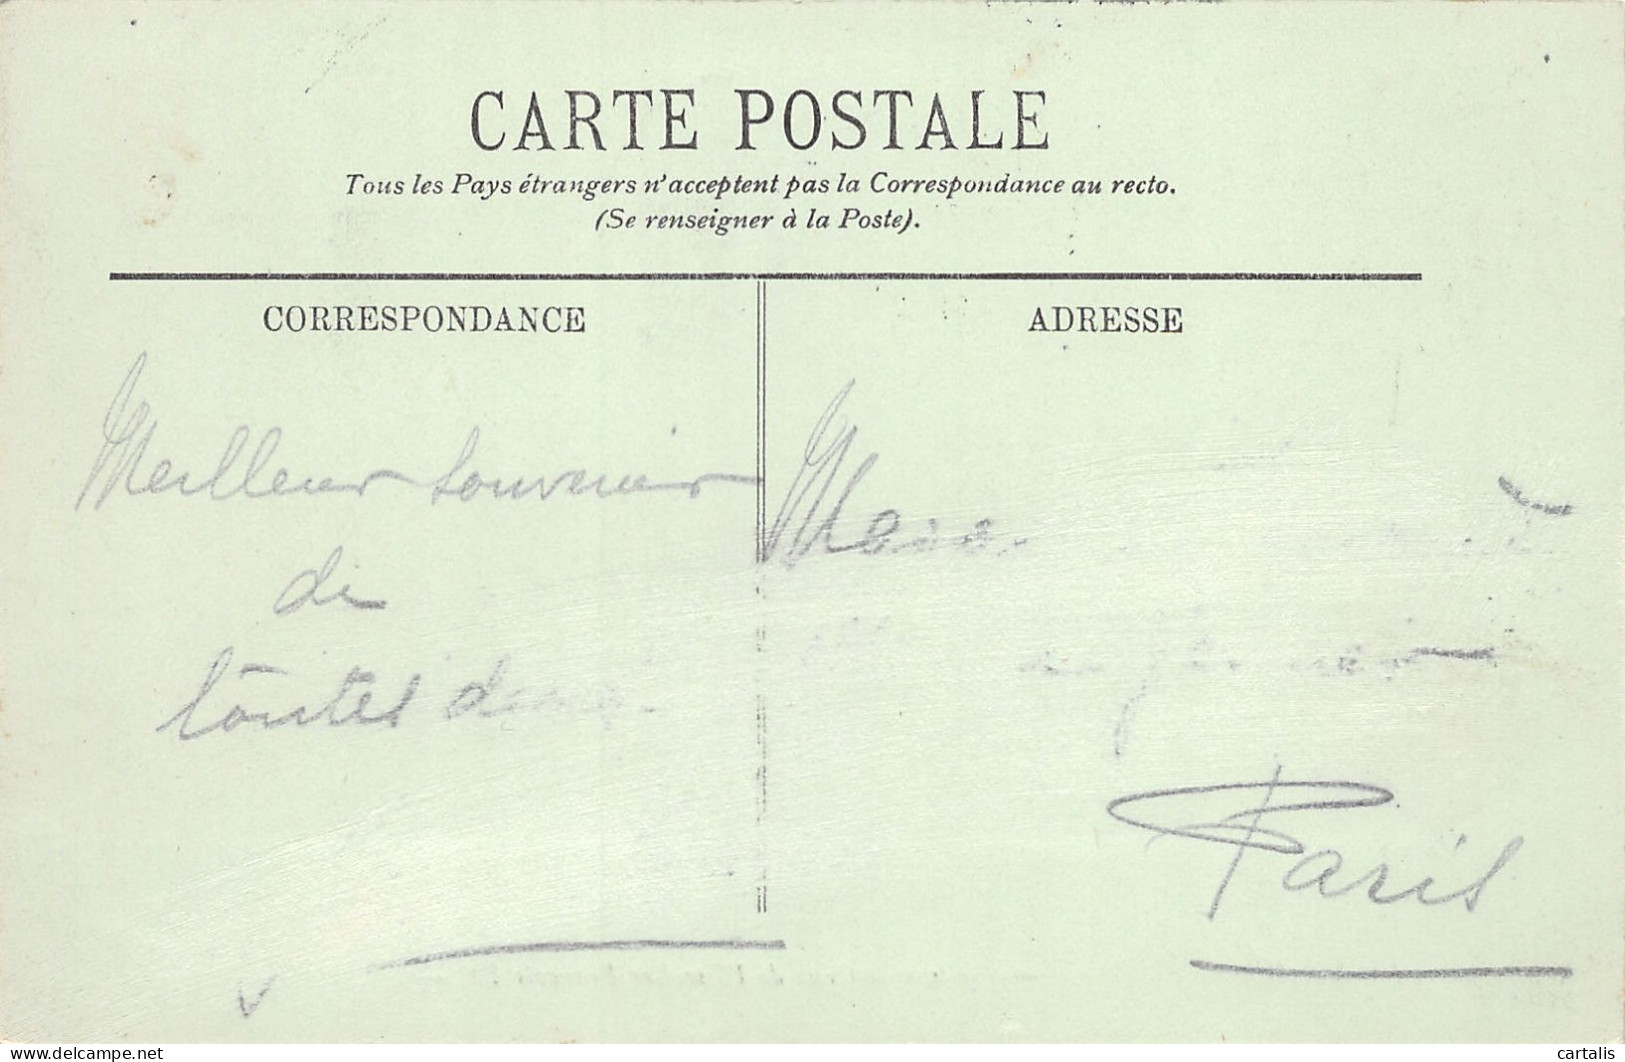 CARTE POSTALE
Tous les Pays étrangers n'acceptent pas la Correspondance au recto.
(Se renseigner à la Poste).
CORRESPONDANCE
ADRESSE
Meilleur souvenir
de
toutes
Paris
www.delcampe.net
cartalis